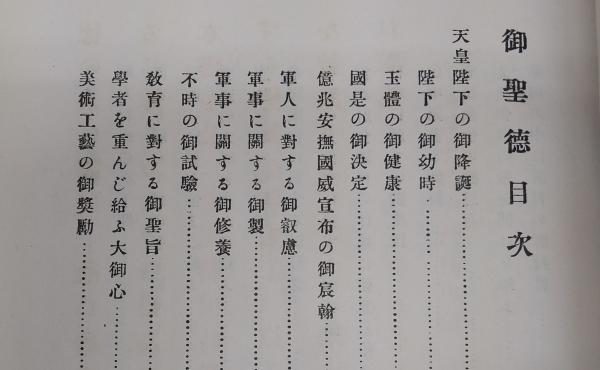 御聖德目次
天皇陛下の御降誕
陛下の御幼時
玉體の御健康
國是の御決定
億兆安撫國威宣布の御宸翰
軍人に對する御叡慮
軍事に關する御製
軍事に關する御修養
不時の御試驗
敎育に對する御聖旨
學者を重んじ給ふ大御心
美術工藝の御奬勵